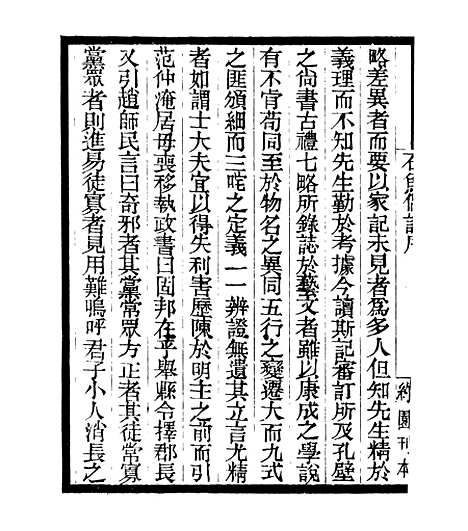 石魚偶記序
約園刊本
略差異者而要以家記未見者為多人但知先生精於
義理而不知先生勤於考據今讀斯記審訂所及孔壁
之尚書古禮七略所錄誌於藝文者雖以康成之學說
有不肯苟同至於物名之異同五行之變遷大而九式
之匪頒細而三咤之定義一一辨證無遺其立言尤精
者如謂士大夫宜以得失利害歷陳於明主之前而引
范仲淹居母喪移執政書曰固邦在乎舉縣令擇郡長
又引趙師民言曰奇邪者其黨常眾方正者其徒常寡
黨眾者則進易徒寡者見用難嗚呼君子小人消長之